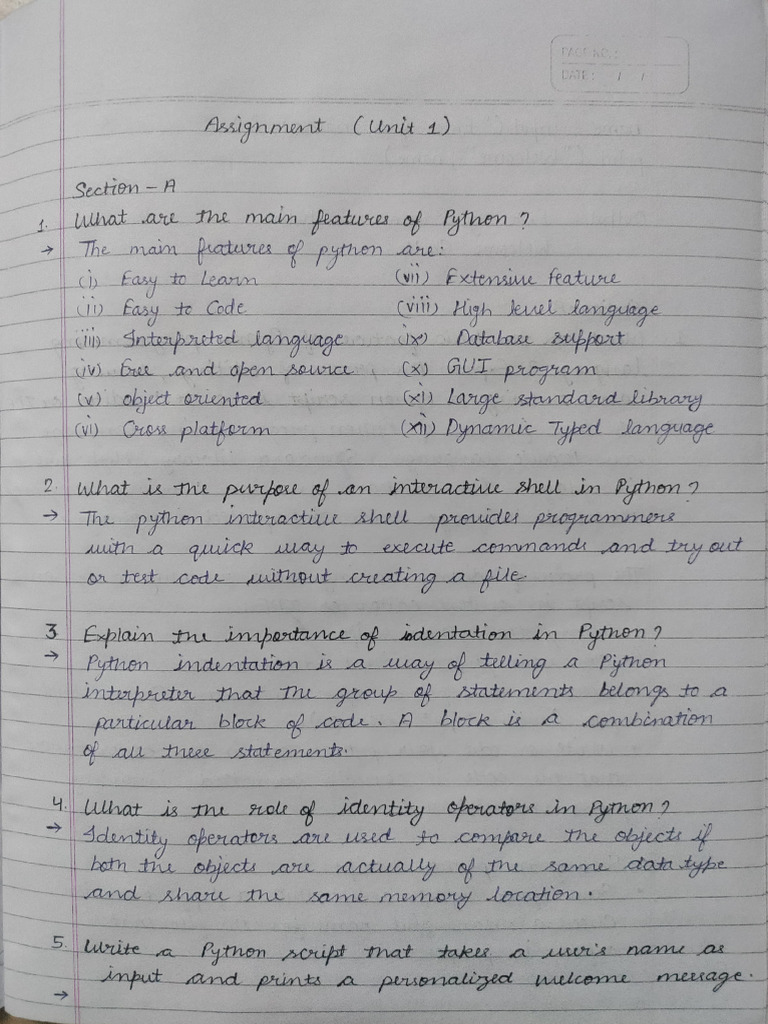 PAGE NO.:
DATE: / /
Assignment (Unit 1)
Section - A
1. What are the main features of Python?
→ The main features of python are:
(i) Easy to Learn (vii) Extensive feature
(ii) Easy to Code (viii) High level language
(iii) Interpreted language (ix) Database support
(iv) Free and open source (x) GUI program
(v) object oriented (xi) Large standard library
(vi) Cross platform (xii) Dynamic Typed language
2. What is the purpose of an interactive shell in Python?
→ The python interactive shell provides programmers
with a quick way to execute commands and try out
or test code without creating a file.
3 Explain the importance of identation in Python?
→ Python indentation is a way of telling a Python
interpreter that the group of statements belongs to a
particular block of code. A block is a combination
of all these statements.
4. What is the role of identity operators in Python?
→ Identity operators are used to compare the objects if
both the objects are actually of the same data type
and share the same memory location.
5. Write a Python script that takes a user's name as
input and prints a personalized welcome message.
→